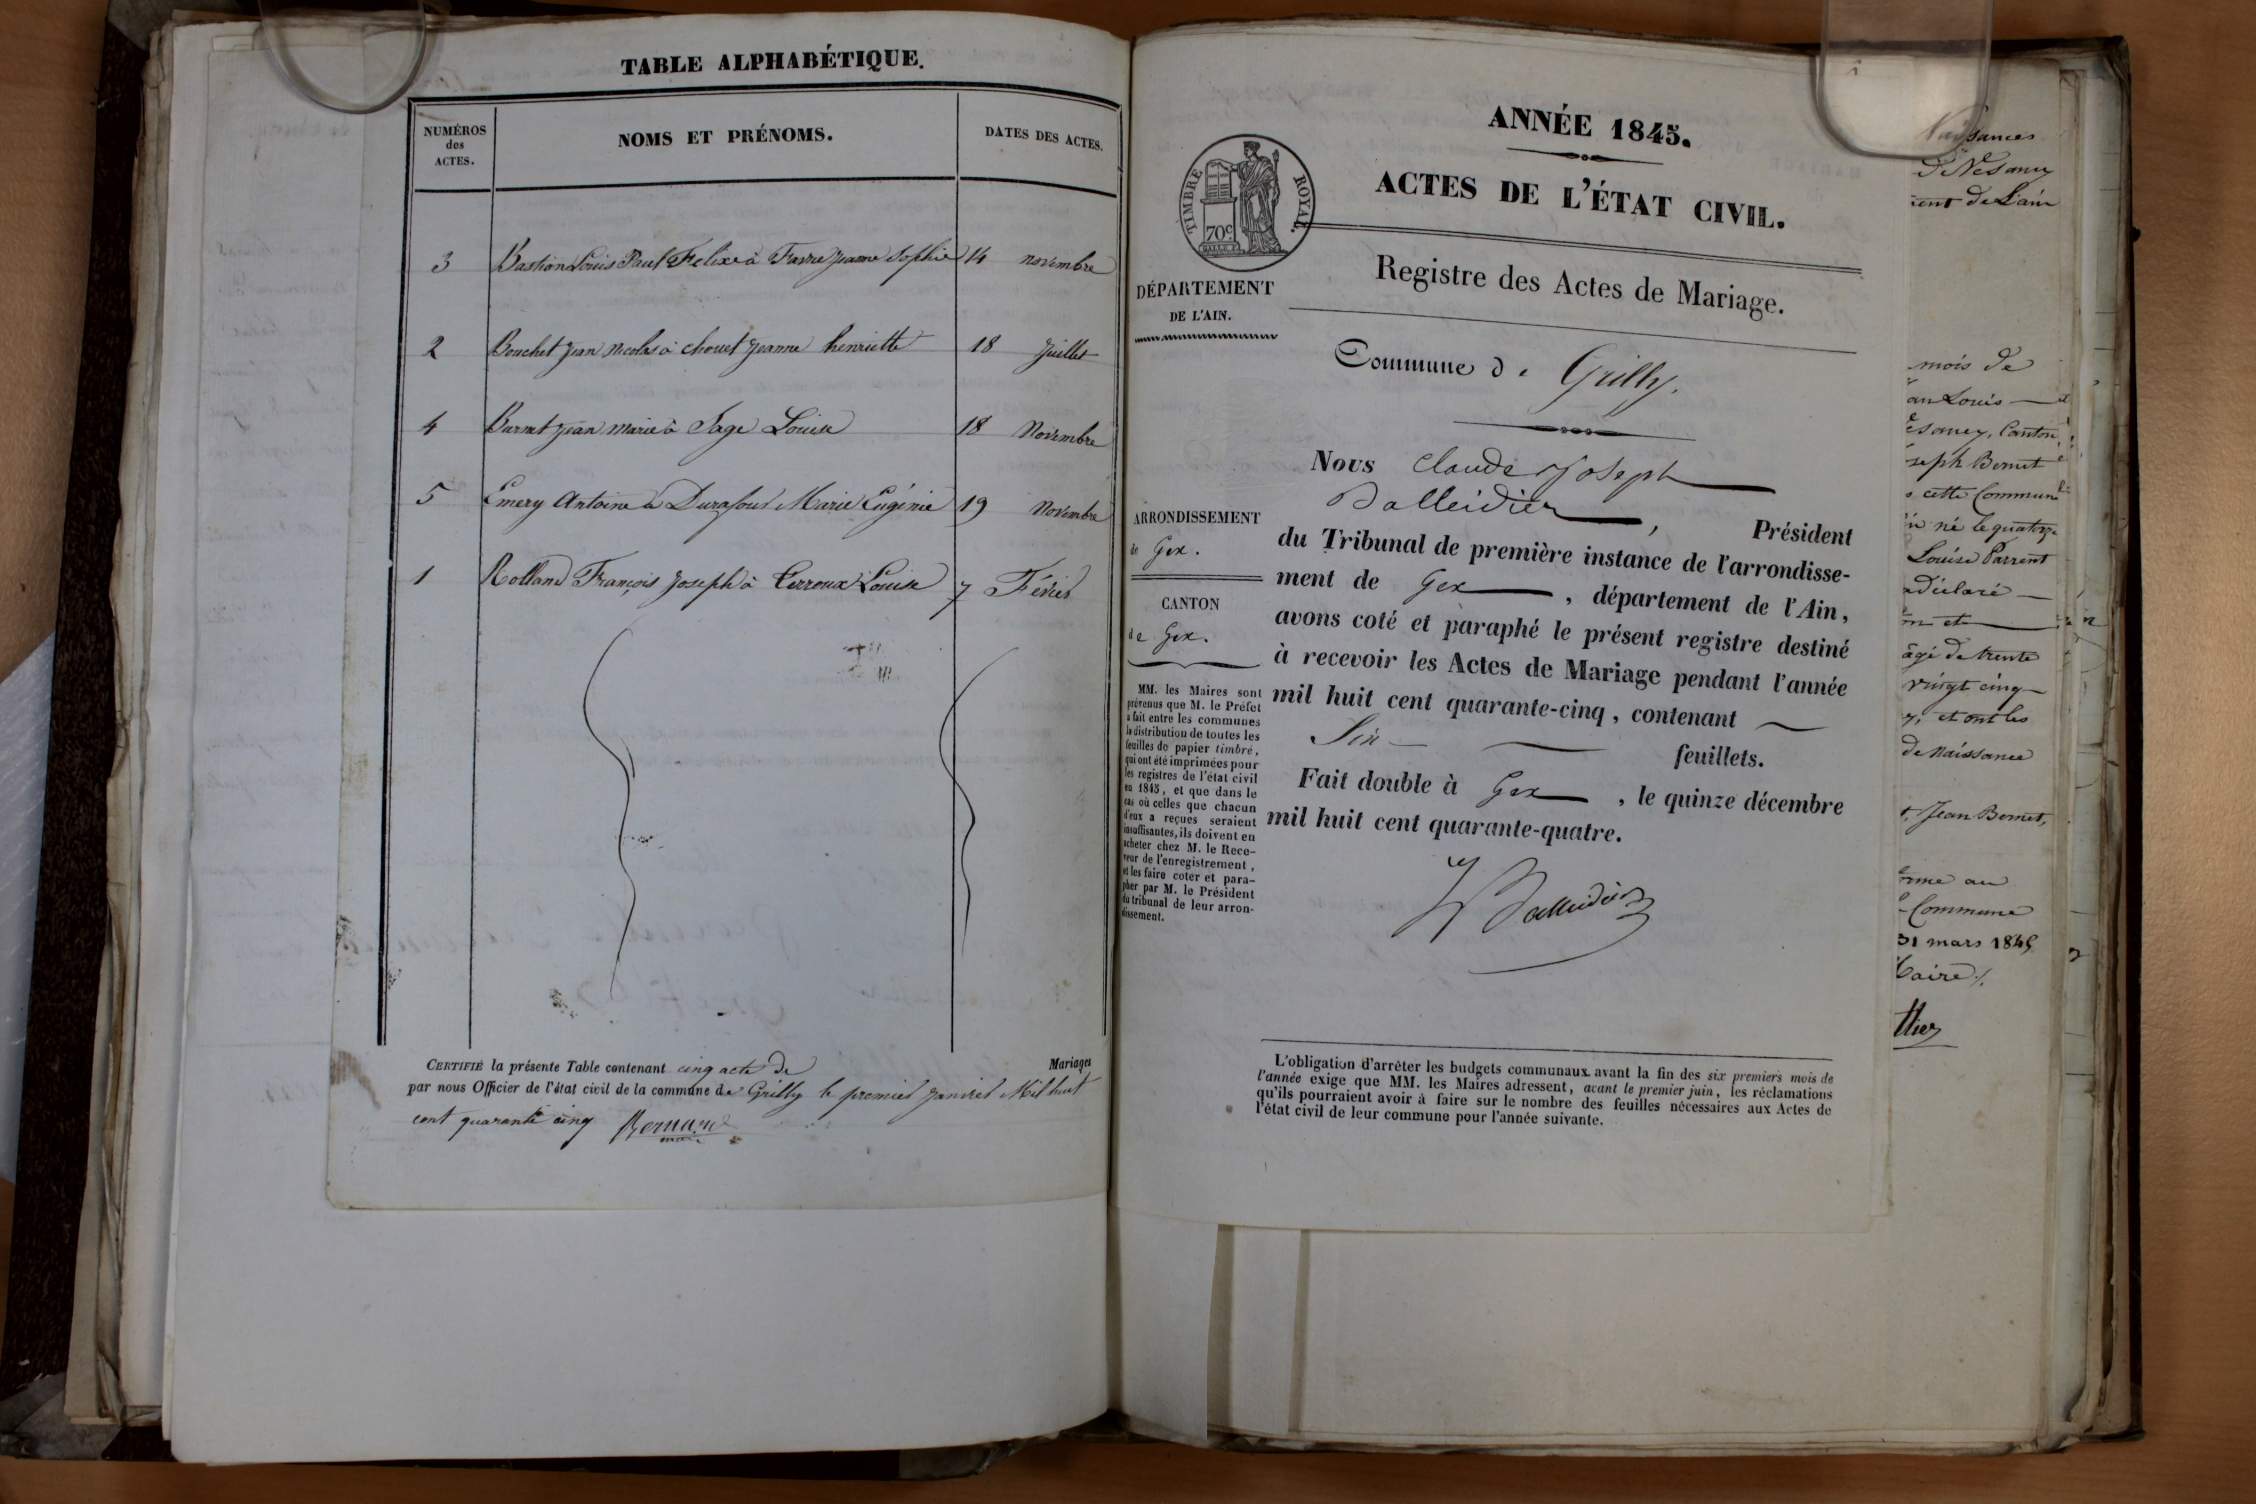 TABLE ALPHABÉTIQUE.
NUMÉROS
des
ACTES.
NOMS ET PRÉNOMS.
DATES DES ACTES.
3 Bastion Louis Paul Felix à Favre Jeanne Sophie 14 novembre
2 Bouchet Jean Nicolas à Chouet Jeanne henriette 18 Juillet
4 Jean Marie à Sage Louise 18 Novembre
5 Emery Antoine à Marie Eugénie 19 Novembre
1 Rolland François Joseph à Louise 7 Février
CERTIFIÉ la présente Table contenant cinq acte de Mariages
par nous Officier de l'état civil de la commune de Grilly le premier Janvier Mil huit
cent quarante cinq Bernard
ANNÉE 1845.
ACTES DE L'ÉTAT CIVIL.
TIMBRE ROYAL
70c
DÉPARTEMENT
DE L'AIN.
Registre des Actes de Mariage.
Commune de Grilly.
Nous Claude Joseph
Balleidier, Président
du Tribunal de première instance de l'arrondisse-
ment de Gex, département de l'Ain,
avons coté et paraphé le présent registre destiné
à recevoir les Actes de Mariage pendant l'année
mil huit cent quarante-cinq, contenant
Six feuillets.
Fait double à Gex, le quinze décembre
mil huit cent quarante-quatre.
Balleidier
ARRONDISSEMENT
de Gex.
CANTON
de Gex.
MM. les Maires sont
prévenus que M. le Préfet
a fait entre les communes
la distribution de toutes les
feuilles de papier timbré,
qui ont été imprimées pour
les registres de l'état civil
en 1845, et que dans le
cas où celles que chacun
d'eux a reçues seraient
insuffisantes, ils doivent en
acheter chez M. le Rece-
veur de l'enregistrement,
et les faire coter et para-
pher par M. le Président
du tribunal de leur arron-
dissement.
L'obligation d'arrêter les budgets communaux avant la fin des six premiers mois de
l'année exige que MM. les Maires adressent, avant le premier juin, les réclamations
qu'ils pourraient avoir à faire sur le nombre des feuilles nécessaires aux Actes de
l'état civil de leur commune pour l'année suivante.
sances
de Vesancy
ent de L'ain
mois de
an Louis
esancy, Canton
seph Bernet
cette Commune
né le quatorze
Louise Parrent
a déclaré
et
âgé de trente
vingt cinq
et ont les
de Naissance
Jean Bernet,
orme au
Commune
31 mars 1845
Maire